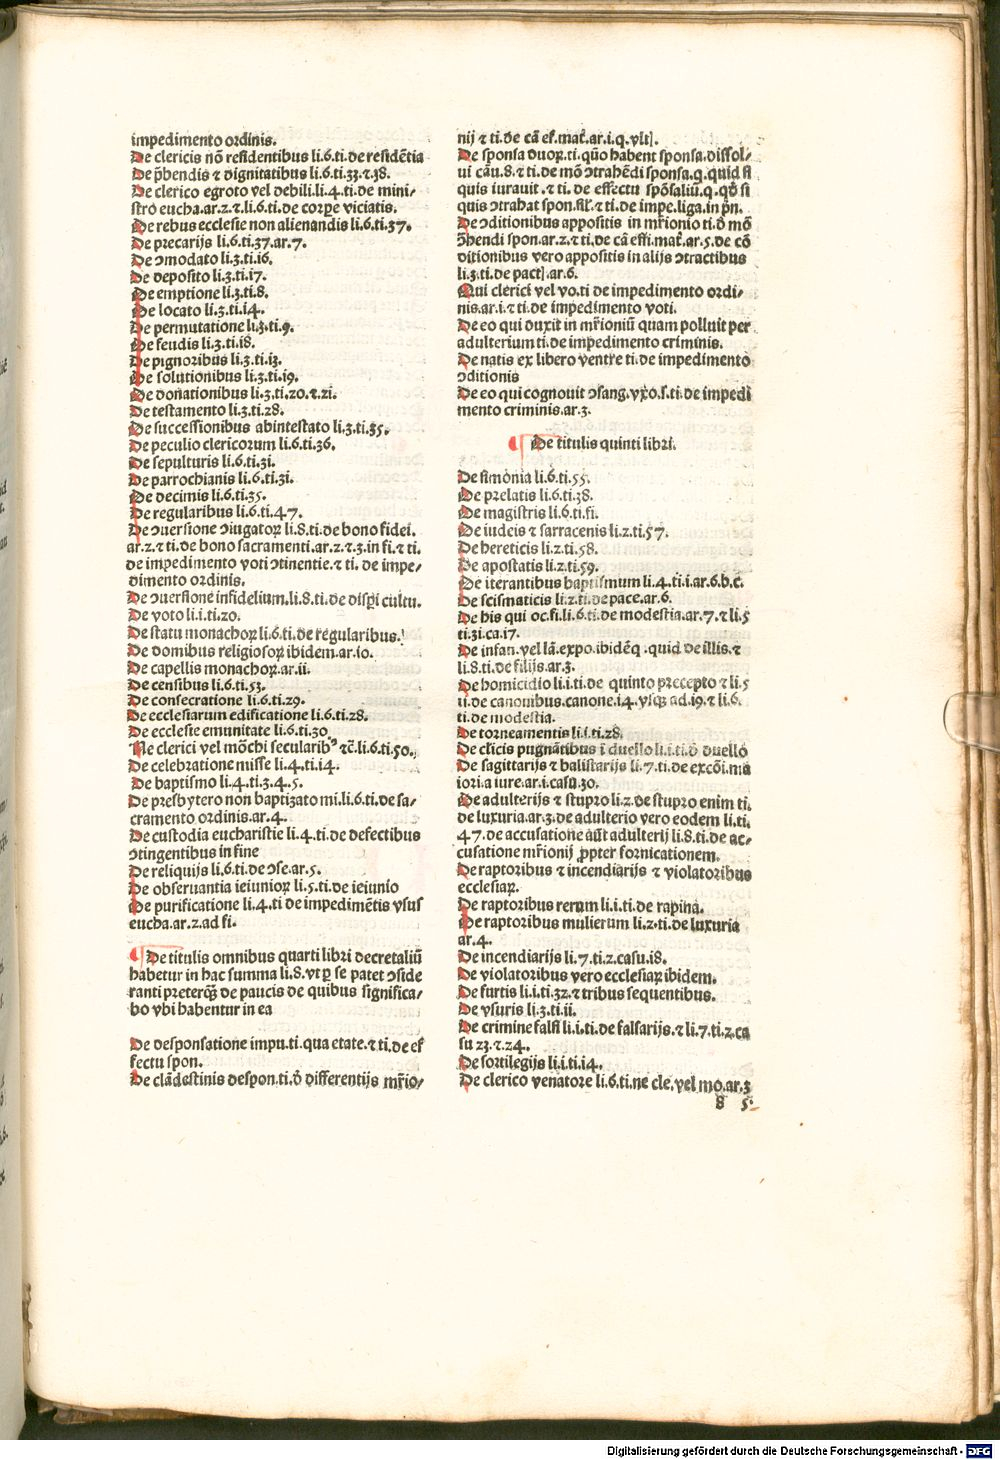 impedimento ordinis.
De clericis nõ residentibus li.6.ti.de residẽtia
De p̃bendis ⁊ dignitatibus li.6.ti.33.⁊.38.
De clerico egroto vel debili.li.4.ti.de mini⸗
stro eucha.ar.2.⁊.li.6.ti.de corꝑe viciatis.
De rebus ecclesie non alienandis li.6.ti.37.
De precarijs li.6.ti.37.ar.7.
De ↄmodato li.3.ti.16.
De deposito li.3.ti.17.
De emptione li.3.ti.8.
De locato li.3.ti.14.
De permutatione li.3.ti.9.
De feudis li.3.ti.18.
De pignoribus li.3.ti.13.
De solutionibus li.3.ti.19.
De donationibus li.3.ti.20.⁊.21.
De testamento li.3.ti.28.
De successionibus abintestato li.3.ti.35.
De peculio clericorum li.6.ti.36.
De sepulturis li.6.ti.31.
De parrochianis li.6.ti.31.
De decimis li.6.ti.35.
De regularibus li.6.ti.47.
De ↄuersione ↄiugatoꝝ li.8.ti.de bono fidei.
ar.2.⁊ ti.de bono sacramenti.ar.2.⁊.3.in fi.⁊ ti.
de impedimento voti ↄtinentie.⁊ ti. de impe⸗
dimento ordinis.
De ↄuersione infidelium.li.8.ti.de disp̃i cultu.
De voto li.1.ti.20.
De statu monachoꝝ li.6.ti.de regularibus.
De domibus religiosoꝝ ibidem.ar.10.
De capellis monachoꝝ.ar.11.
De censibus li.6.ti.53.
De consecratione li.6.ti.29.
De ecclesiarum edificatione li.6.ti.28.
De ecclesie emunitate li.6.ti.30
Ne clerici vel mõchi secularibꝰ ⁊c̃.li.6.ti.50.
De celebratione misse li.4.ti.14.
De baptismo li.4.ti.3.4.5.
De presbytero non baptizato mi.li.6.ti.de sa⸗
cramento ordinis.ar.4.
De custodia eucharistie li.4.ti.de defectibus
ↄtingentibus in fine
De reliquijs li.6.ti.de ↄse.ar.5.
De obseruantia ieiunioꝝ li.5.ti.de ieiunio
De purificatione li.4.ti de impedimẽtis vsus
eucha.ar.2.ad fi.
De titulis omnibus quarti libri decretaliũ
habetur in hac summa li.8.vt ꝑ se patet ↄside
ranti preterq̃ de paucis de quibus significa⸗
bo vbi habentur in ea
De desponsatione impu.ti.qua etate.⁊ ti.de ef
fectu spon.
De clãdestinis despon.ti.õ differentijs mr̃io⸗
nij ⁊ ti.de cã ef.mat̃.ar.1.q.vlt̃.
De sponsa duoꝝ.ti.q̃uo habent sponsa.dissol⸗
ui cãu.8.⁊ ti.de mõ ↄtrahẽdi sponsa.q.quid si
quis iurauit.⁊ ti.de effectu spõsaliũ.q.qď si
quis ↄtrahat spon.sil̃.⁊ ti.de impe.liga.in pñ.
De ↄditionibus appositis in mr̃ionio ti.õ mõ
ↄ̃hendi spon.ar.2.⁊ ti.de cã effi.mat̃.ar.5.de cõ
ditionibus vero appositis in alijs ↄtractibus
li.3.ti.de pact̃.ar.6.
Qui clerici vel vo.ti de impedimento ordi⸗
nis.ar.1.⁊ ti.de impedimento voti.
De eo qui duxit in mr̃ioniũ quam polluit per
adulterium ti.de impedimento criminis.
De natis ex libero ventre ti.de impedimento
ↄditionis
De eo qui cognouit ↄsang.vxo.s.ti.de impedi
mento criminis.ar.3.
De titulis quinti libri.
De simonia li.6.ti.55.
De prelatis li.6.ti.38.
De magistris li.6.ti.fi.
De iudeis ⁊ sarracenis li.2.ti.57.
De hereticis li.2.ti.58.
De apostatis li.2.ti.59.
De iterantibus baptismum li.4.ti.1.ar.6.b.c.
De scismaticis li.2.ti.de pace.ar.6.
De his qui oc.fi.li.6.ti.de modestia.ar.7.⁊ li.5
ti.31.ca.17.
De infan.vel lã.expo.ibidẽq̃.quid de illis.⁊
li.8.ti.de filijs.ar.3.
De homicidio li.1.ti.de quinto precepto ⁊ li.5
11.de canonibus.canone.14.vsq̃ ad.19.⁊ li.6.
ti.de modestia.
De torneamentis li.1.ti.28.
De cl̃icis pugnãtibus ĩ duello li.1.ti.õ duello
De sagittarijs ⁊ balistarijs li.7.ti.de excõi.ma
iori.a iure.ar.1.casu.30.
De adulterijs ⁊ stupro li.2.de stupro enim ti.
de luxuria.ar.3.de adulterio vero eodem li.ti.
47.de accusatione aũt adulterij li.8.ti.de ac⸗
cusatione mr̃ionij ꝓpter fornicationem.
De raptoribus ⁊ incendiarijs ⁊ violatoribus
ecclesiaꝝ.
De raptoribus rerum li.1.ti.de rapina.
De raptoribus mulierum li.2.ti.de luxuria
ar.4.
De incendiarijs li.7.ti.2.casu.18.
De violatoribus vero ecclesiaꝝ ibidem.
De furtis li.1.ti.32.⁊ tribus sequentibus.
De vsuris li.3.ti.11.
De crimine falsi li.1.ti.de falsarijs.⁊ li.7.ti.2.ca
su 23.⁊.24.
De sortilegijs li.1.ti.14.
De clerico venatore li.6.ti.ne cle.vel mo.ar.3
8 5
Digitalisierung gefördert durch die Deutsche Forschungsgemeinschaft - DFG